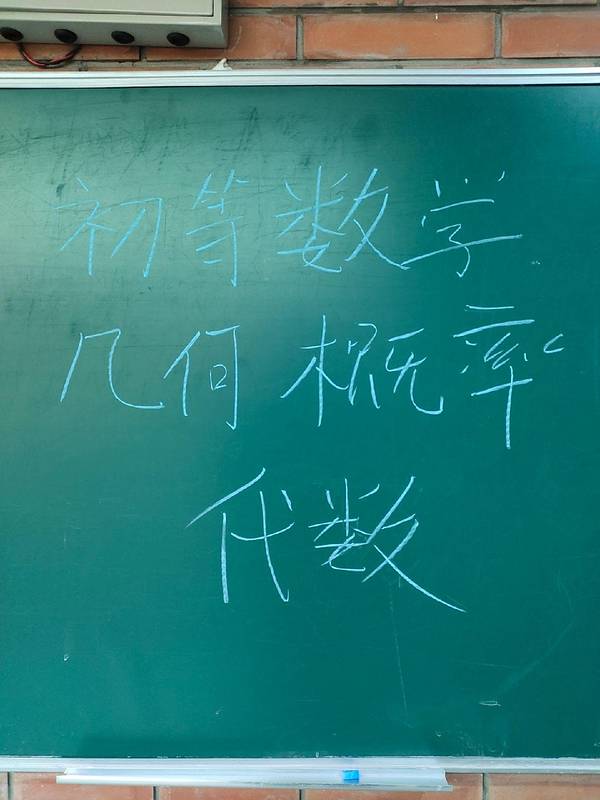 初等数学
几何 概率
代数